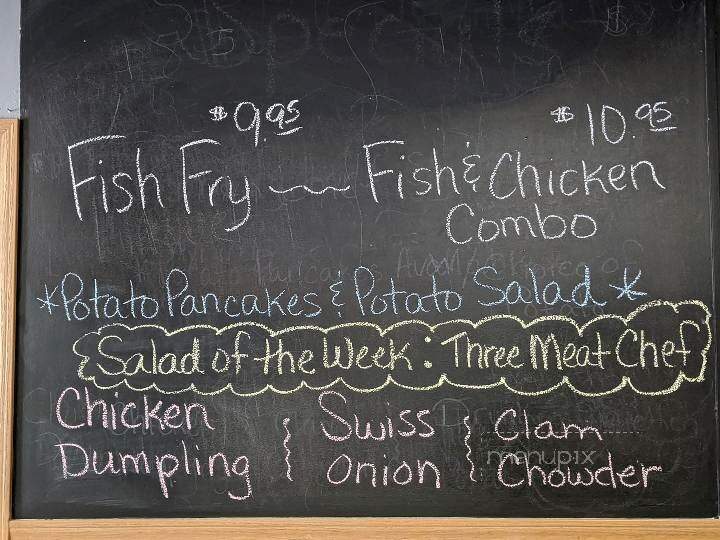 $9.95 $10.95
Fish Fry ~ Fish & Chicken
Combo
*Potato Pancakes & Potato Salad*
Salad of the Week: Three Meat Chef
Chicken Swiss Clam
Dumpling Onion Chowder
menupix